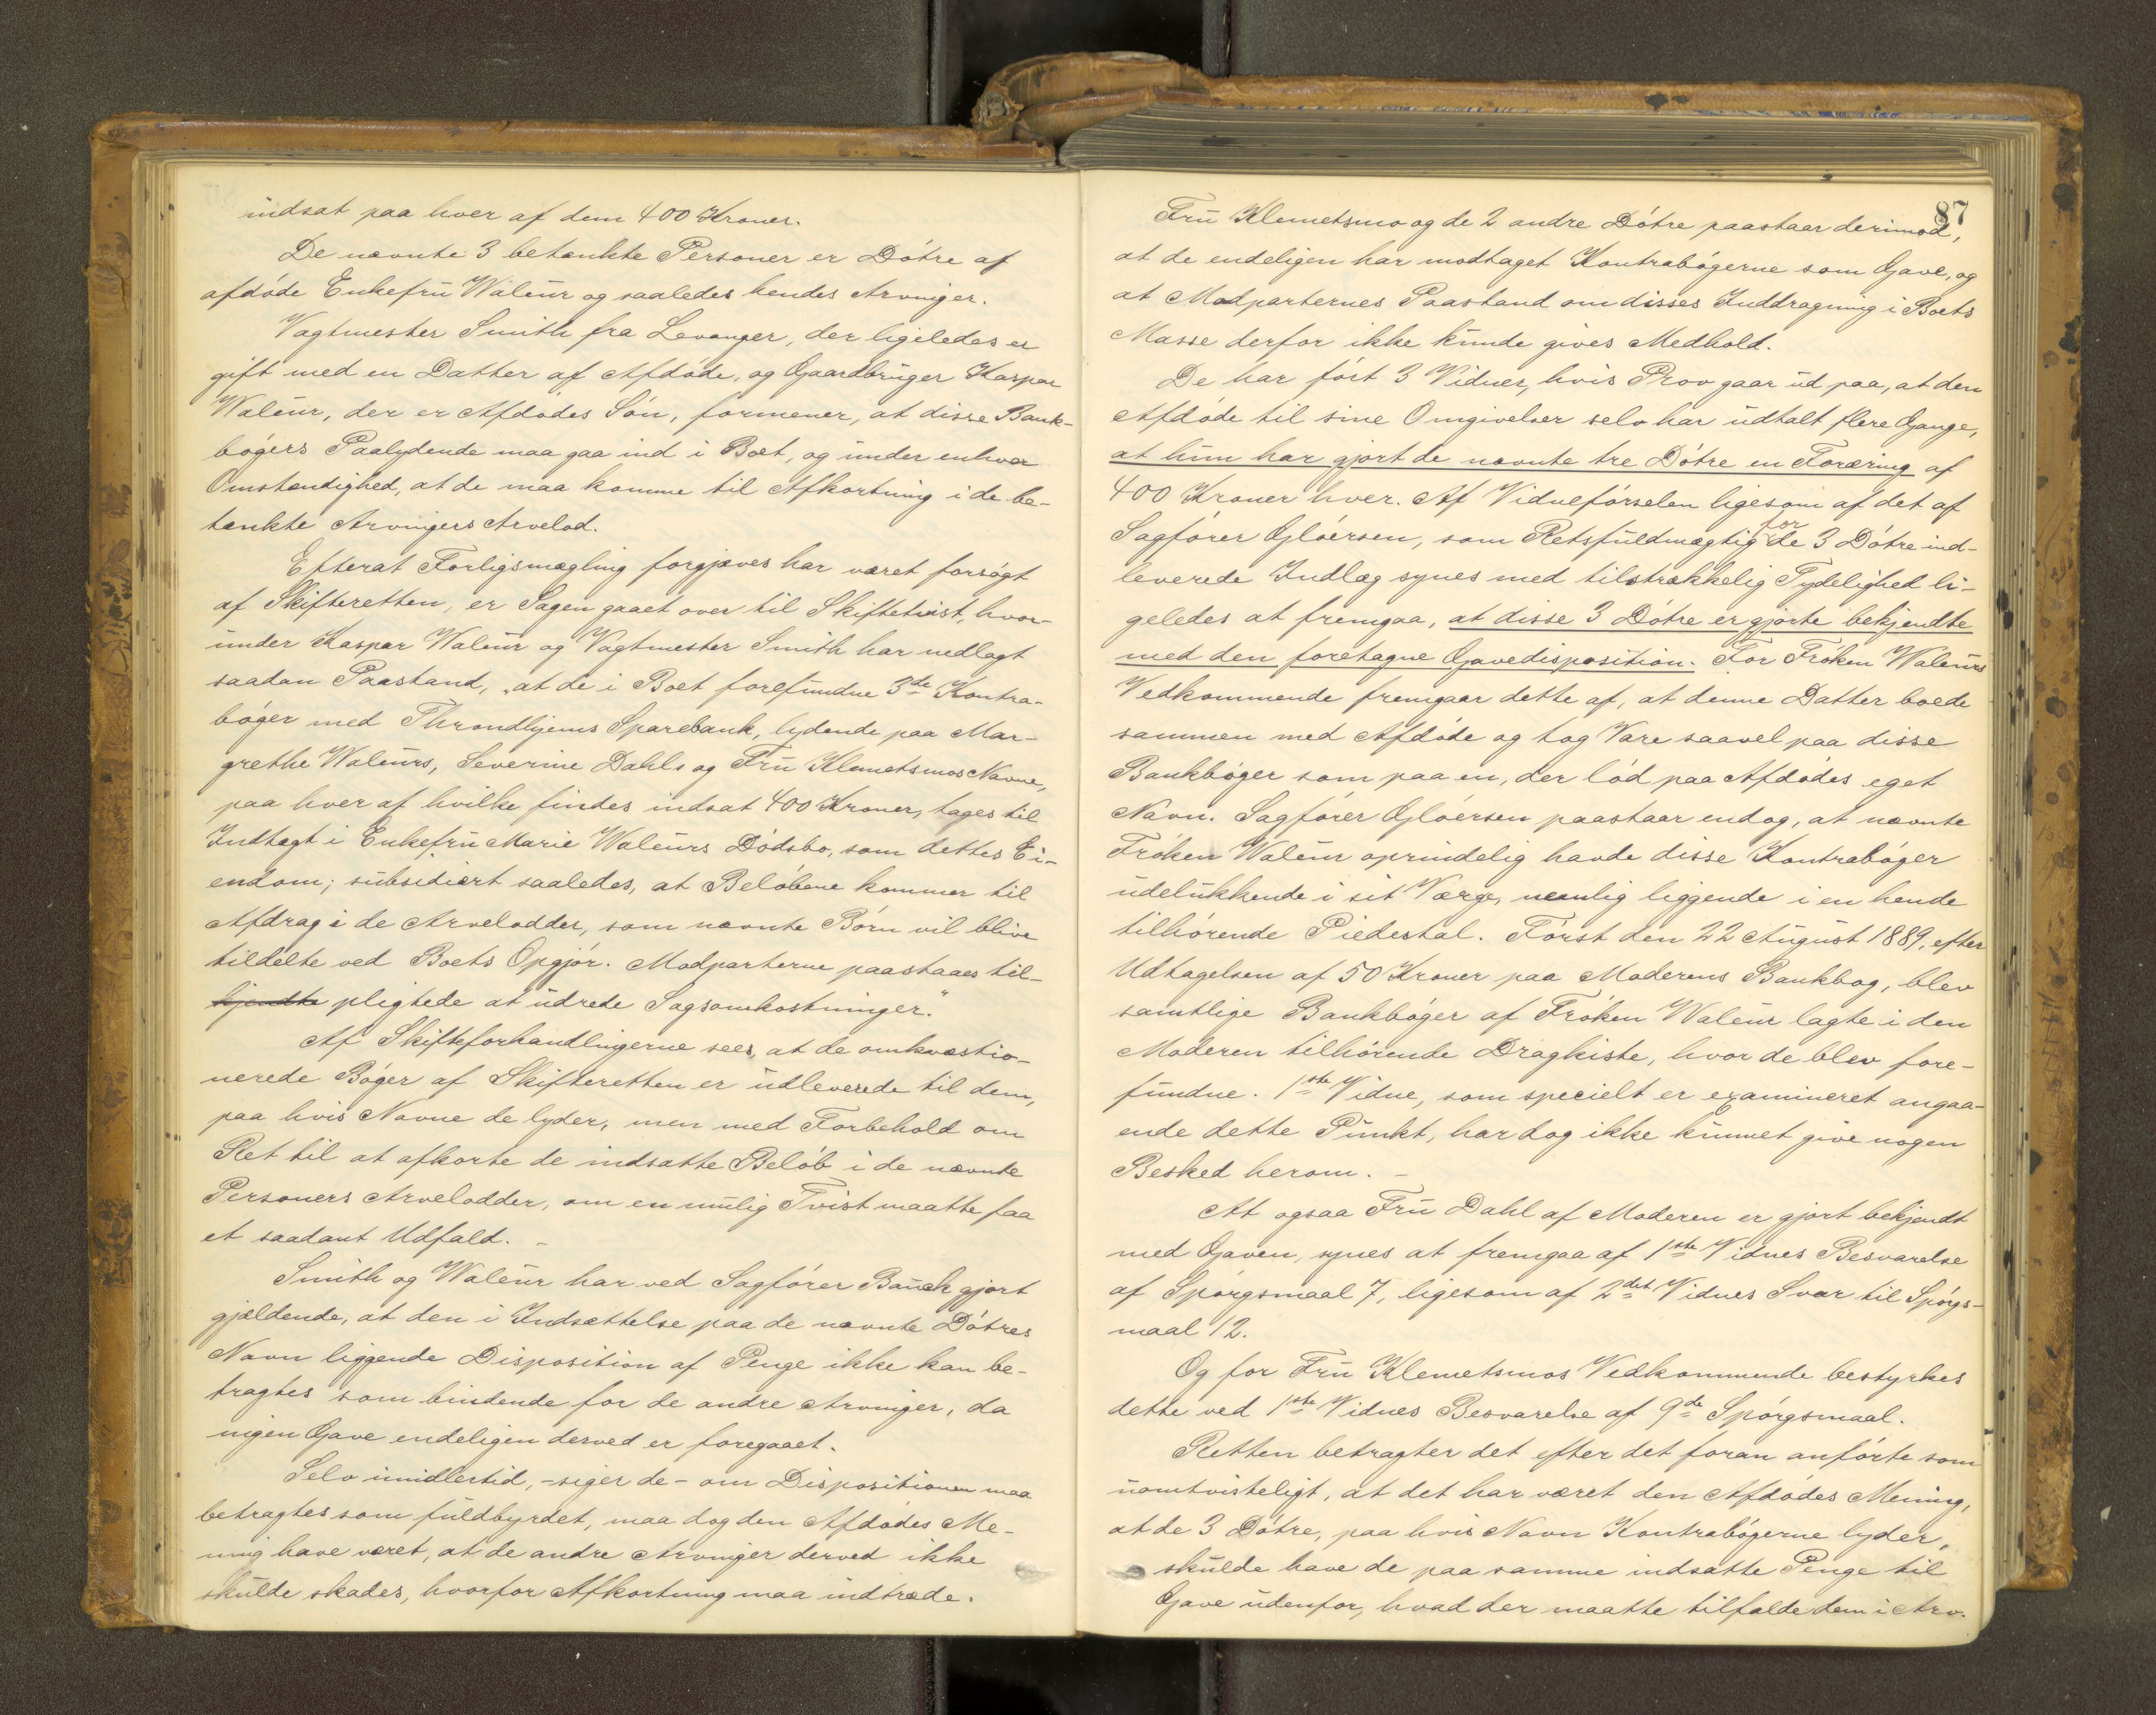 indsat paa hver af dem 400 Kroner.
De nævnte 3 betænkte Personer er Døtre af
afdøde Enkefru Waleur og saaledes hendes Arvinger.
Vagtmester Smith fra Levanger, der ligeledes er
gift med en Datter af Afdøde, og Gaardbruger Kaspar
Waleur, der er Afdødes Søn, formener, at disse Bank-
bøgers Paalydende maa gaa ind i Boet, og under enhver
Omstændighed, at de maa komme til Afkortning i de be-
tænkte Arvingers Arvelod.
Efterat Forligsmægling forgjæves har været forsøgt
af Skifteretten, er Sagen gaaet over til Skiftetvist, hvor-
under Kaspar Waleur og Vagtmester Smith har nedlagt
saadan Paastand, „at de i Boet forefundne 3de Kontra-
bøger med Throndhjems Sparebank, lydende paa Mar-
grethe Waleurs, Severine Dahls og Fru Klemetsmos Navne,
paa hver af hvilke findes indsat 400 Kroner, tages til
Indtægt i Enkefru Marie Waleurs Dødsbo, som dettes Ei-
endom; subsidiært saaledes, at Beløbene kommer til
Afdrag i de Arvelodder, som nævnte Børn vil blive
tildelte ved Boets Opgjør. Modparterne paastaaes til-
kjendte pligtede at udrede Sagsomkostninger."
Af Skifteforhandlingerne sees, at de omkvæstio-
nerede Bøger af Skifteretten er udleverede til dem,
paa hvis Navne de lyder, men med Forbehold om
Ret til at afkorte de indsatte Beløb i de nævnte
Personers Arvelodder, om en mulig Tvist maatte faa
et saadant Udfald. –
Smith og Waleur har ved Sagfører Bauck gjort
gjældende, at den i Indsættelse paa de nævnte Døtres
Navn liggende Disposition af Penge ikke kan be-
tragtes som bindende for de andre Arvinger, da
ingen Gave endeligen derved er foregaaet.
Selv imidlertid, – siger de – om Dispositionen maa
betragtes som fuldbyrdet, maa dog den Afdødes Me-
ning have været, at de andre Arvinger derved ikke
skulde skades, hvorfor Afkortning maa indtræde.
87
Fru Klemetsmo og de 2 andre Døtre paastaar derimod,
at de endeligen har modtaget Kontrabøgerne som Gave, og
at Modparternes Paastand om disses Inddragning i Boets
Masse derfor ikke kunde gives Medhold.
De har ført 3 Vidner, hvis Prov gaar ud paa, at den
Afdøde til sine Omgivelser selv har udtalt flere Gange,
at hun har gjort de nævnte tre Døtre en Foræring af
400 Kroner hver. Af Vidneførselen ligesom af det af
Sagfører Gløersen, som Retsfuldmægtig for de 3 Døtre ind-
leverede Indlæg synes med tilstrækkelig Tydelighed li-
geledes at fremgaa, at disse 3 Døtre er gjorte bekjendte
med den foretagne Gavedisposition. For Frøken Waleurs
Vedkommende fremgaar dette af, at denne Datter boede
sammen med Afdøde og tog Vare saavel paa disse
Bankbøger som paa en, der lød paa Afdødes eget
Navn. Sagfører Gløersen paastaar endog, at nævnte
Frøken Waleur oprindelig havde disse Kontrabøger
udelukkende i sit Værge, nemlig liggende i en hende
tilhørende Piedestal. Først den 22 August 1889, efter
Udtagelsen af 50 Kroner paa Moderens Bankbog, blev
samtlige Bankbøger af Frøken Waleur lagte i den
Moderen tilhørende Dragkiste, hvor de blev fore-
fundne. 1ste Vidne, som specielt er examineret angaa-
ende dette Punkt, har dog ikke kunnet give nogen
Besked herom. –
At ogsaa Fru Dahl af Moderen er gjort bekjendt
med Gaven, synes at fremgaa af 1ste Vidnes Besvarelse
af Spørgsmaal 7, ligesom af 2det Vidnes Svar til Spørgs-
maal 12.
Og for Fru Klemetsmos Vedkommende bestyrkes
dette ved 1ste Vidnes Besvarelse af 9de Spørgsmaal.
Retten betragter det efter det foran anførte som
uomtvisteligt, at det har været den Afdødes Mening,
at de 3 Døtre, paa hvis Navn Kontrabøgerne lyder,
skulde have de paa samme indsatte Penge til
Gave udenfor, hvad der maatte tilfalde dem i Arv.